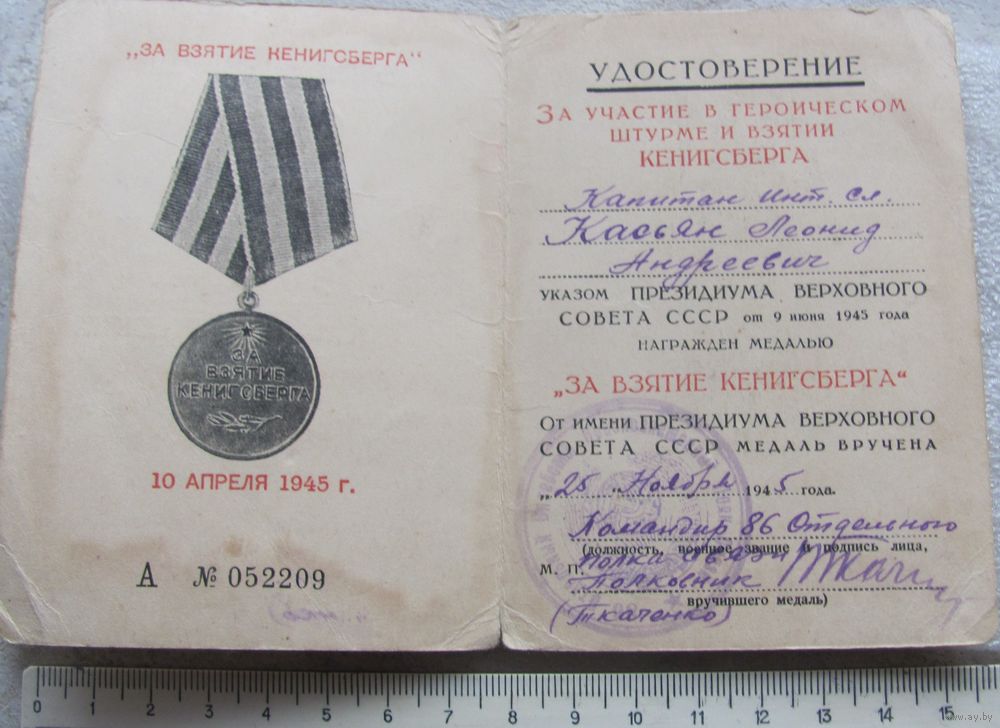 „ЗА ВЗЯТИЕ КЕНИГСБЕРГА“
ЗА
ВЗЯТИЕ
КЕНИГСБЕРГА
10 АПРЕЛЯ 1945 г.
А № 052209
УДОСТОВЕРЕНИЕ
ЗА УЧАСТИЕ В ГЕРОИЧЕСКОМ
ШТУРМЕ И ВЗЯТИИ
КЕНИГСБЕРГА
Капитан Инт. сл.
Касьян Леонид
Андреевич
УКАЗОМ ПРЕЗИДИУМА ВЕРХОВНОГО
СОВЕТА СССР от 9 июня 1945 года
НАГРАЖДЕН МЕДАЛЬЮ
„ЗА ВЗЯТИЕ КЕНИГСБЕРГА“
От имени ПРЕЗИДИУМА ВЕРХОВНОГО
СОВЕТА СССР МЕДАЛЬ ВРУЧЕНА
„25 Ноября 1945 года.
Командир 86 Отдельного
(должность, военное звание и подпись лица,
М. П. полка связи
Полковник Ткачен
вручившего медаль)
(Ткаченко)
0 1 2 3 4 5 6 7 8 9 10 11 12 13 14 15
www.ay.by